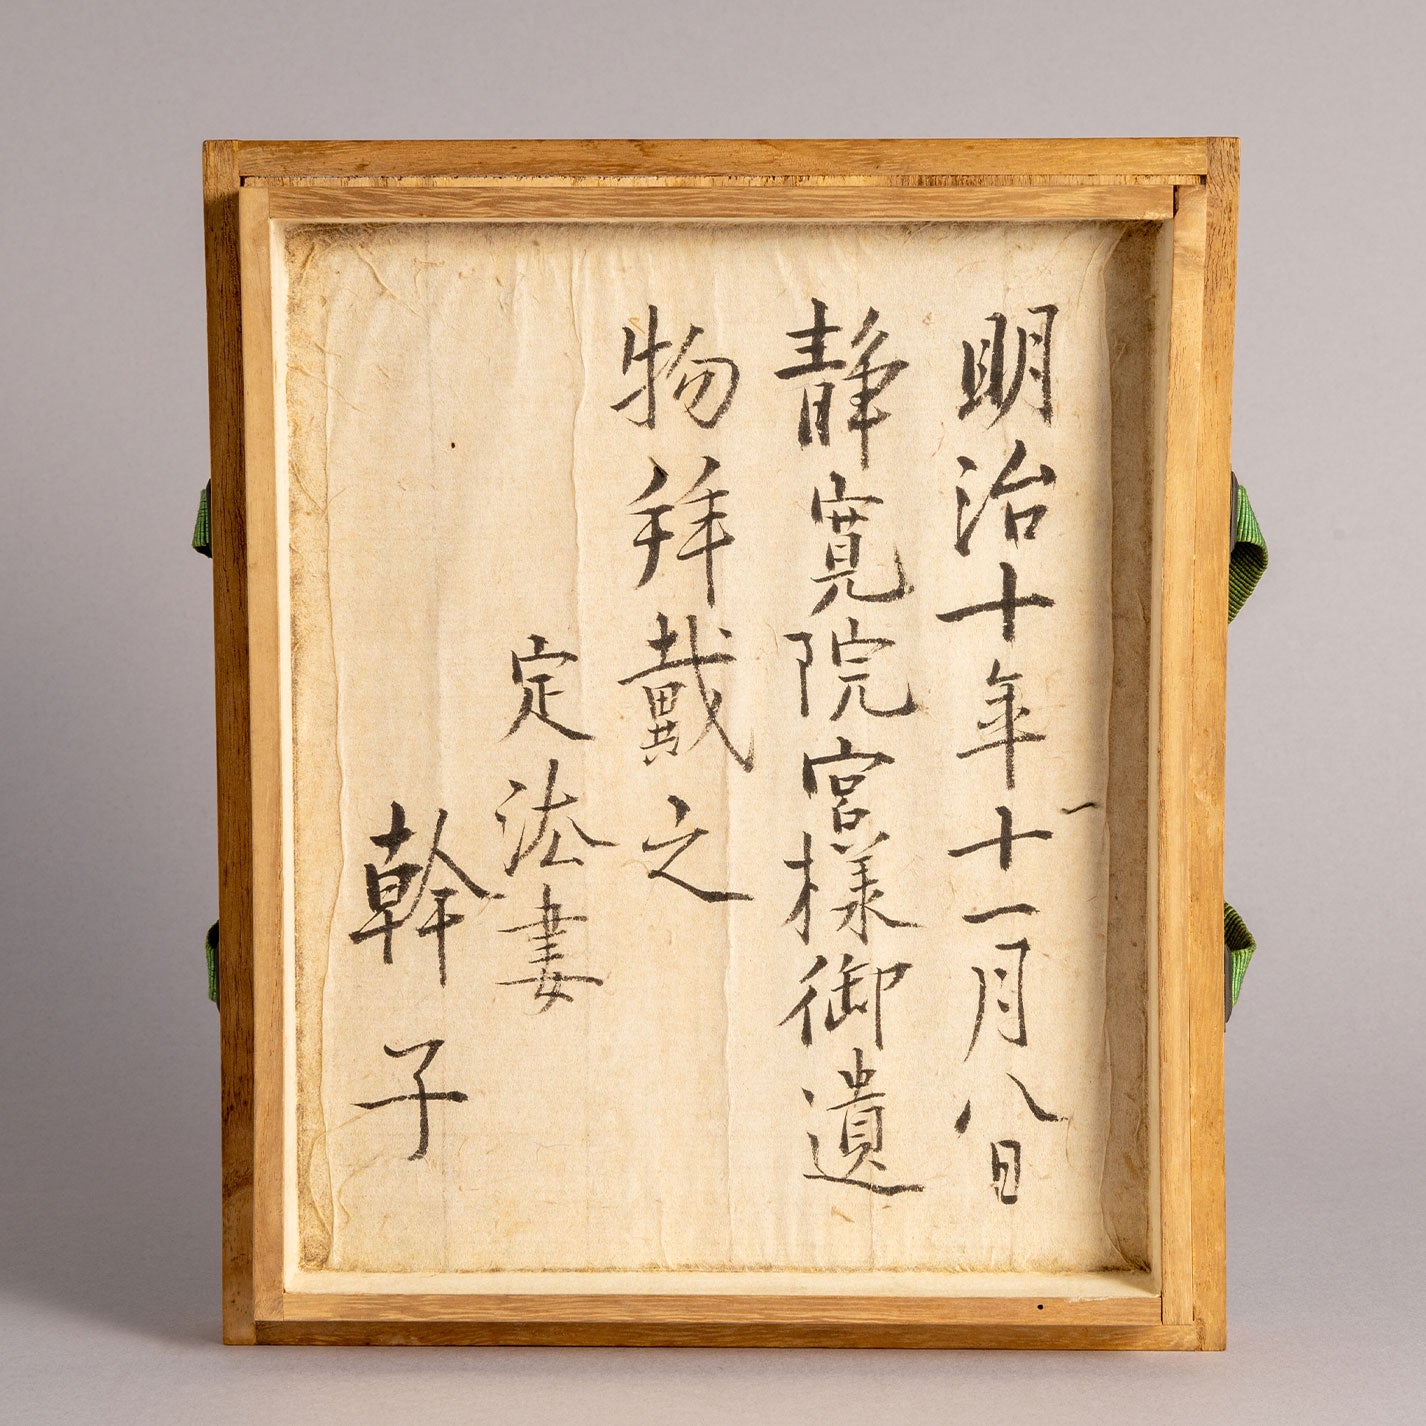 明治十年十一月八日
静寛院宮様御遺
物拜戴之
定法妻
幹子